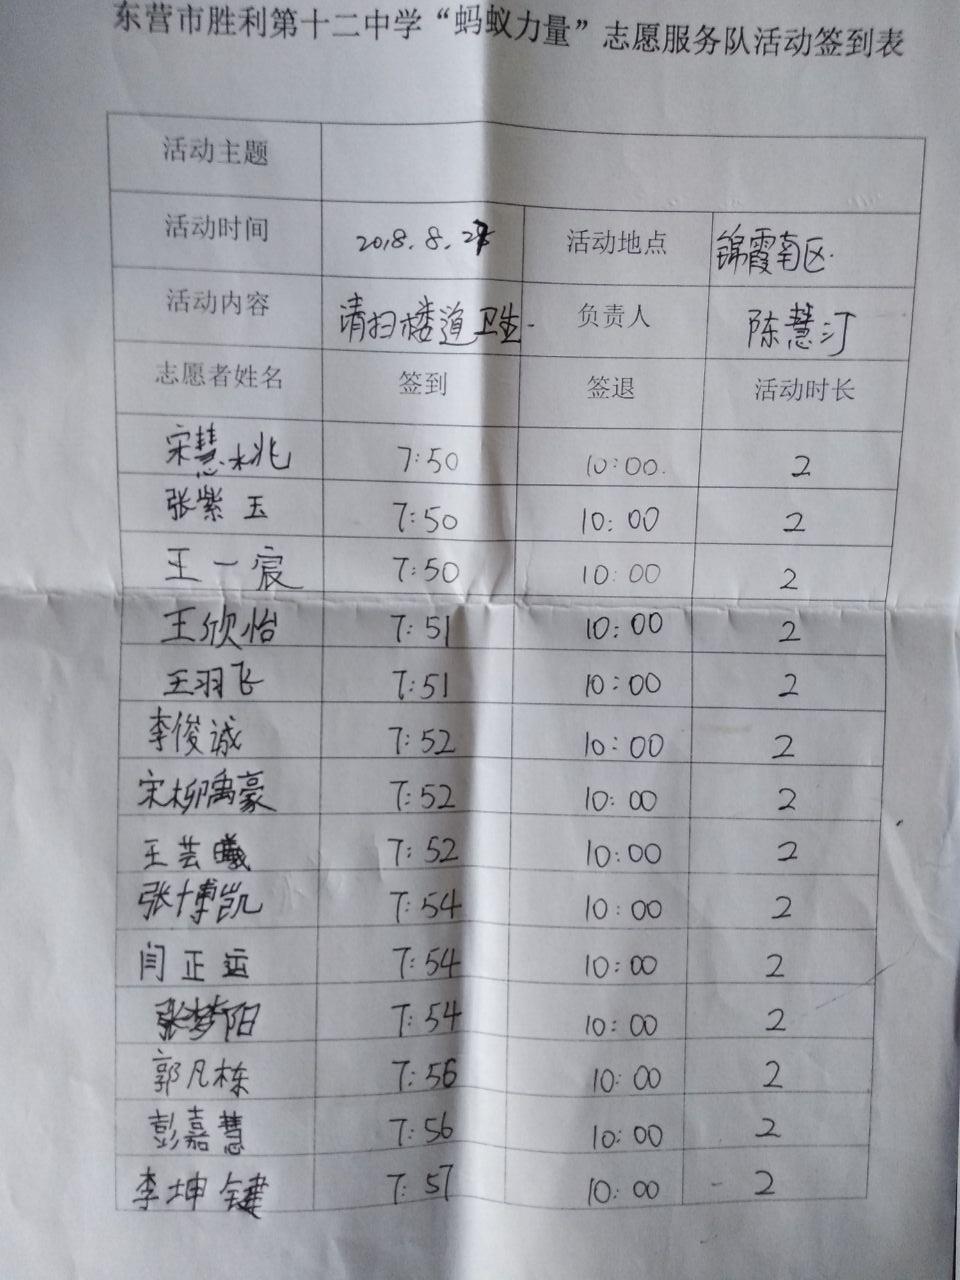 东营市胜利第十二中学“蚂蚁力量”志愿服务队活动签到表
活动主题
活动时间 2018.8. 活动地点 锦霞南区.
活动内容 清扫楼道卫生. 负责人 陈慧汀
志愿者姓名 签到 签退 活动时长
宋慧桃 7:50 10:00. 2
张紫玉 7:50 10:00 2
王一宸 7:50 10:00 2
王欣怡 7:51 10:00 2
王羽飞 7:51 10:00 2
李俊诚 7:52 10:00 2
宋柳禹豪 7:52 10:00 2
王芸曦 7:52 10:00 2
张博凯 7:54 10:00 2
闫正运 7:54 10:00 2
张梦阳 7:54 10:00 2
郭凡栋 7:56 10:00 2
彭嘉慧 7:56 10:00 2
李坤键 7:57 10:00 2